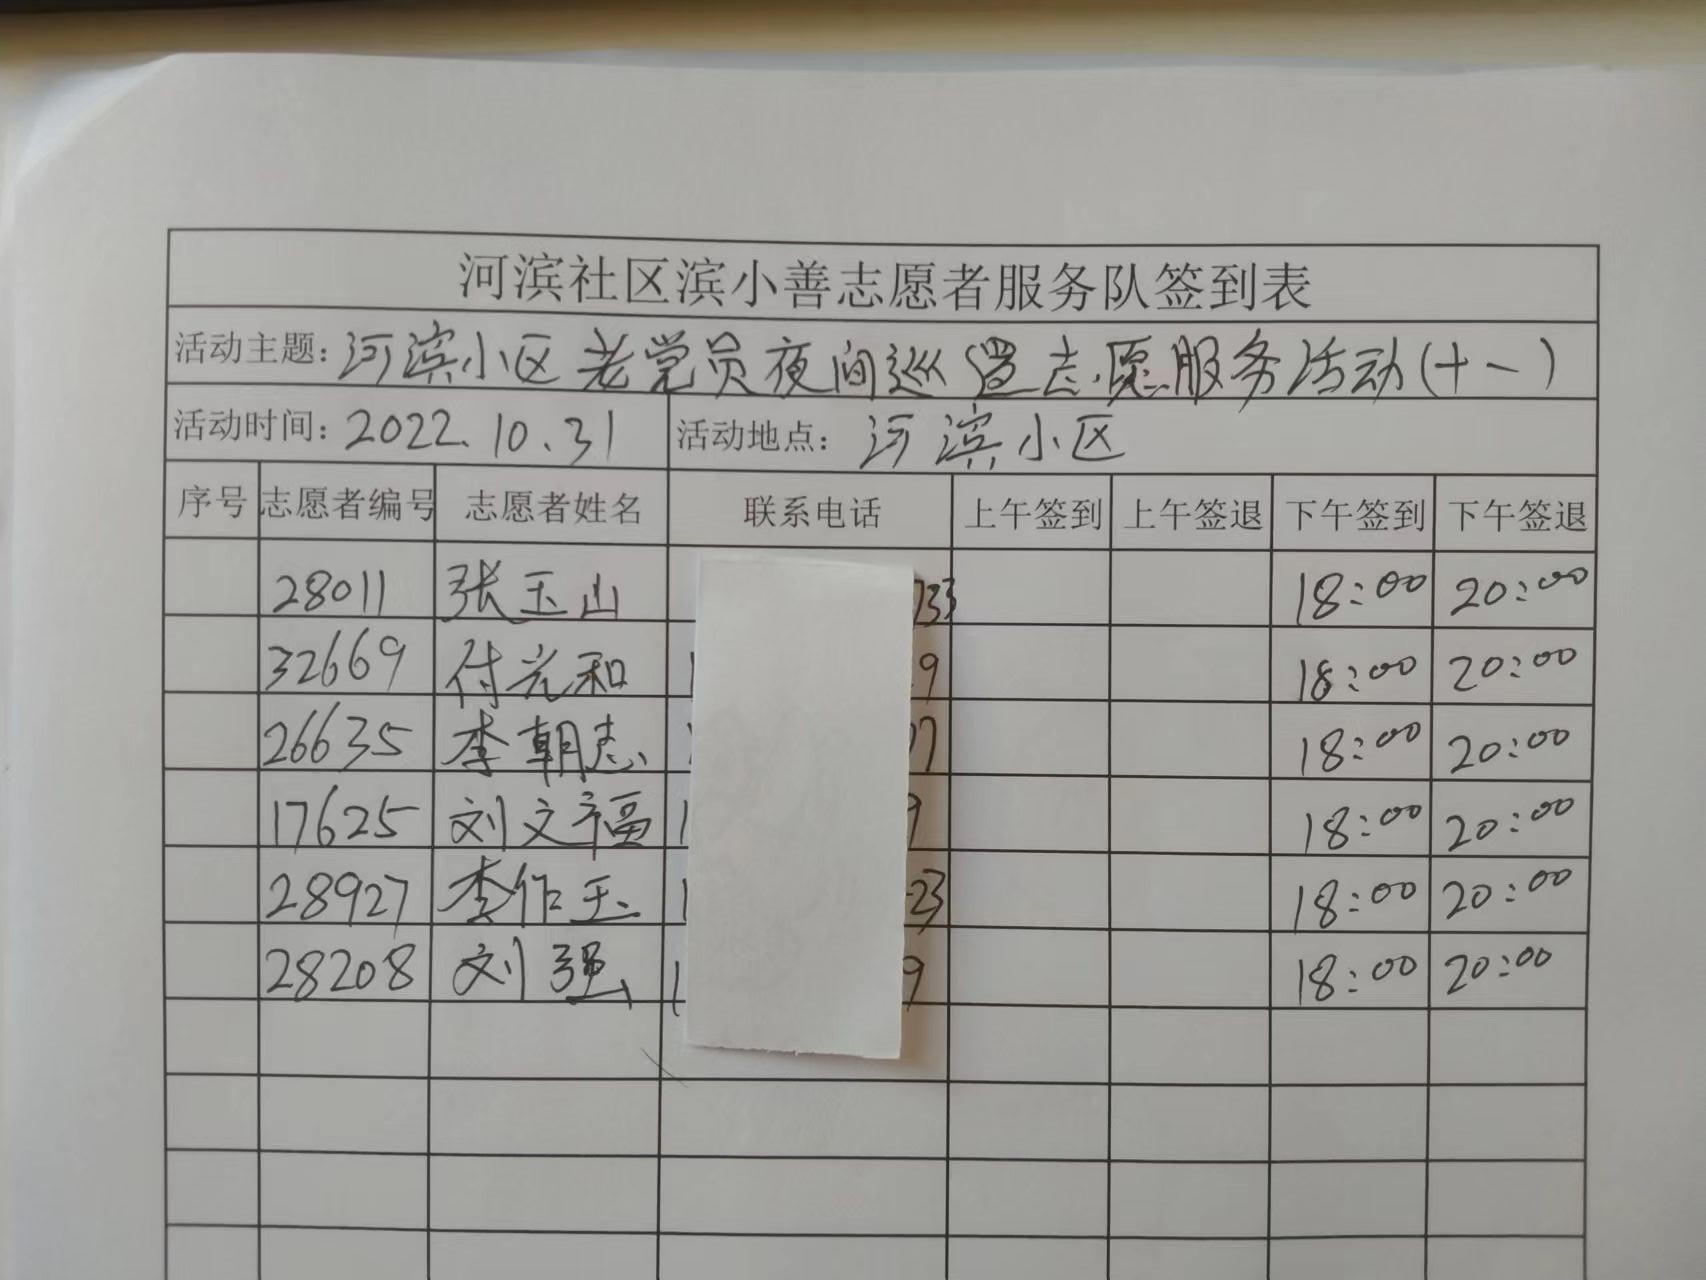 河滨社区滨小善志愿者服务队签到表
活动主题：河滨小区老党员夜间巡逻志愿服务活动(十一)
活动时间：2022.10.31 活动地点：河滨小区
序号 志愿者编号 志愿者姓名 联系电话 上午签到 上午签退 下午签到 下午签退
28011 张玉山 733 18:00 20:00
32669 付光和 9 18:00 20:00
26635 李朝志 7 18:00 20:00
17625 刘文福 1 9 18:00 20:00
28927 李作玉 1 23 18:00 20:00
28208 刘强 1 9 18:00 20:00